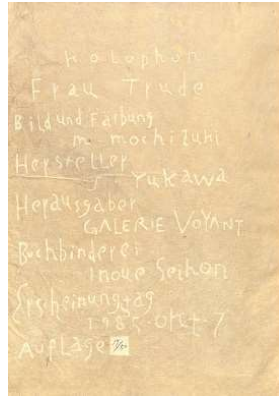 Kolophon
Frau Trude
Bild und Färbung
m. mochizuki
Hersteller
Yukawa
Herausgeber
GALERIE VOYANT
Buchbinderei
Inoue Seihon
Erscheinungstag
1985. Okt. 7
AUFLAGE